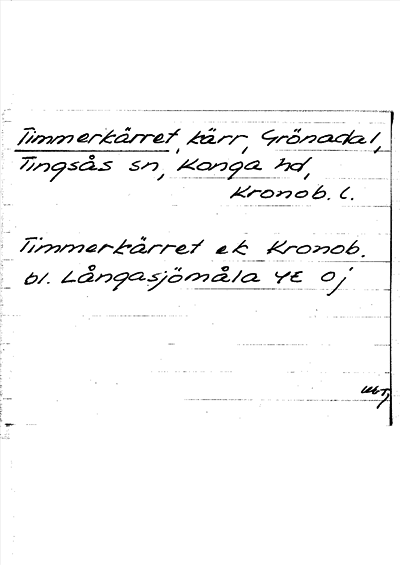 Timmerkärret, kärr, Grönadal,
Tingsås sn, Konga hd,
Kronob. l.
Timmerkärret ek Kronob.
bl. Långasjömåla 4E 0j